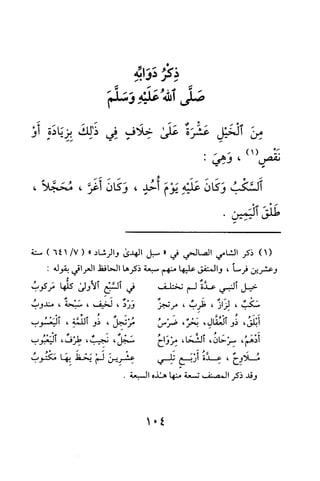 ذِكْرُ دَوَابِّهِ
صَلَّى ٱللهُ عَلَيْهِ وَسَلَّمَ
مِنَ ٱلْخَيْلِ عَشْرَةٌ عَلَىٰ خِلَافٍ فِي ذَلِكَ بِزِيَادَةٍ أَوْ
نَقْصٍ (١) ، وَهِيَ :
ٱلسَّكْبُ وَكَانَ عَلَيْهِ يَوْمَ أُحُدٍ ، وَكَانَ أَغَرَّ ، مُحَجَّلاً ،
طَلْقَ ٱلْيَمِينِ .
(١) ذكر الشامي الصالحي في « سبل الهدىٰ والرشاد » ( ٧/ ٦٤١ ) ستة
وعشرين فرساً ، والمتفق عليها منهم سبعة ذكرها الحافظ العراقي بقوله :
خيـل ٱلنبـي عـدةٌ لـم تختلـف في ٱلسَّبْعِ ٱلأولىٰ كلُّها مَركوبُ
سَكْبٌ ، لِزَازٌ ، ظَرِبٌ ، مرتجزٌ وَرْدٌ ، لَحيف ، سَبْحَةٌ ، مندوبُ
أَبْلَقُ ، ذُو ٱلْعُقَّالِ ، بَحْرٌ ، ضَرْسُ مُرْتَجِلٌ ، ذُو ٱللِّمَّةِ ، ٱلْيَعْسُوب
أَدْهَمُ ، سِرْحَانُ ، ٱلشَّحَا ، مِرْوَاحُ سَجْلٌ ، نَجِيبٌ ، طِرْفٌ ، ٱلْيَعْبُوب
مُـلَاوِحٌ ، عِـدَّةُ أَرْبَـعٍ تَلِـي عِشْرِينَ لَـمْ يَحْـظَ بِهَـا مَكْتُوبُ
وقد ذكر المصنف تسعة منها هٰذه السبعة .
١٠٤